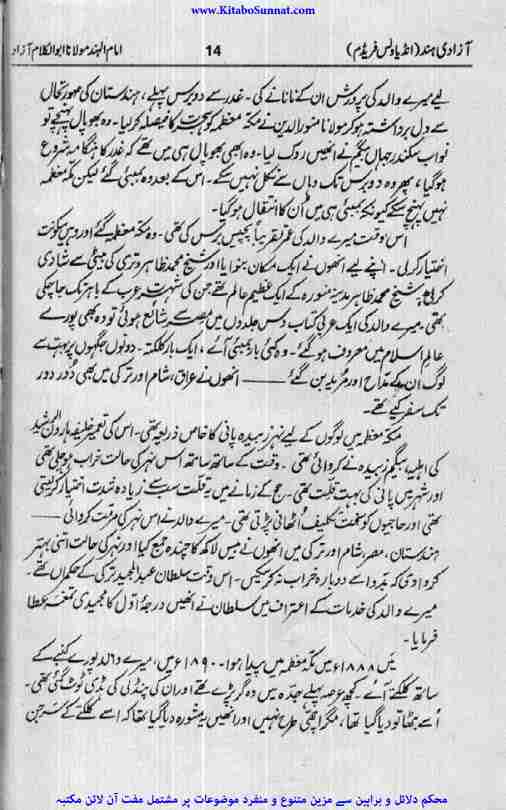 www.KitaboSunnat.com
آزادی ہند (انڈیا ونس فریڈم) 14 امام الہند مولانا ابوالکلام آزاد
لیے میرے والد کی پرورش ان کے نانا نے کی۔ غدر سے دو برس پہلے، ہندستان کی صورتحال
سے دل برداشتہ ہوکر مولانا منورالدین نے مکہ معظمہ کو ہجرت کا فیصلہ کرلیا۔ وہ بھوپال پہنچے تو
نواب سکندر جہاں بیگم نے انھیں روک لیا۔ وہ ابھی بھوپال ہی میں تھے کہ غدر کا ہنگامہ شروع
ہوگیا، پھر وہ دو برس تک وہاں سے نکل نہیں سکے۔ اس کے بعد وہ بمبئی گئے لیکن مکہ معظمہ
نہیں پہنچ سکے کیونکہ بمبئی ہی میں اُن کا انتقال ہوگیا۔
اس وقت میرے والد کی عمر تقریباً پچیس برس کی تھی۔ وہ مکہ معظمہ گئے اور وہیں سکونت
اختیار کرلی۔ اپنے لیے انھوں نے ایک مکان بنوایا اور شیخ محمد ظاہر وتری کی بیٹی سے شادی
کرلی۔ شیخ محمد ظاہر مدینہ منورہ کے ایک عظیم عالم تھے جن کی شہرت عرب کے باہر تک جاچکی
تھی۔ میرے والد کی ایک عربی کتاب دس جلدوں میں مصر سے شایع ہوئی تو وہ بھی پورے
عالمِ اسلام میں معروف ہوگئے۔ وہ کئی بار بمبئی آئے، ایک بار کلکتہ۔ دونوں جگہوں پر بہت سے
لوگ ان کے مداح اور مُرید بن گئے ——— انھوں نے عراق، شام اور ترکی میں بھی دُور دور
تک سفر کیے تھے۔
مکہ معظمہ میں لوگوں کے لیے نہرِ زبیدہ پانی کا خاص ذریعہ تھی۔ اس کی تعمیر خلیفہ ہارون الرشید
کی اہلیہ بیگم زبیدہ نے کروائی تھی۔ وقت کے ساتھ ساتھ اس نہر کی حالت خراب ہوچلی تھی
اور شہر میں پانی کی بہت قلت تھی۔ حج کے زمانے میں یہ قلت سب سے زیادہ شدت اختیار کرلیتی
تھی اور حاجیوں کو سخت تکلیف اُٹھانی پڑتی تھی۔ میرے والد نے اس نہر کی مرمت کروائی ——
ہندستان، مصر، شام اور ترکی میں انھوں نے بیس لاکھ کا چندہ جمع کیا اور نہر کی حالت اتنی بہتر
کروادی کہ بدو اسے دوبارہ خراب نہ کرسکیں۔ اس وقت سلطان عبدالمجید ترکی کے حکمراں تھے۔
میرے والد کی خدمات کے اعتراف میں سلطان نے انھیں درجۂ اوّل کا مجیدی تمغہ عطا
فرمایا۔
میں ۱۸۸۸ء میں مکہ معظمہ میں پیدا ہوا۔ ۱۸۹۰ء میں، میرے والد پورے کنبے کے
ساتھ کلکتے آئے۔ کچھ عرصہ پہلے جدہ میں وہ گر پڑے تھے اور ان کی پنڈلی کی ہڈی ٹوٹ گئی تھی۔
اُسے بٹھا تو دیا گیا تھا، مگر اچھی طرح نہیں اور انھیں یہ مشورہ دیا گیا تھا کہ اسے کلکتے کے سرجن
محکم دلائل و براہین سے مزین متنوع و منفرد موضوعات پر مشتمل مفت آن لائن مکتبہ